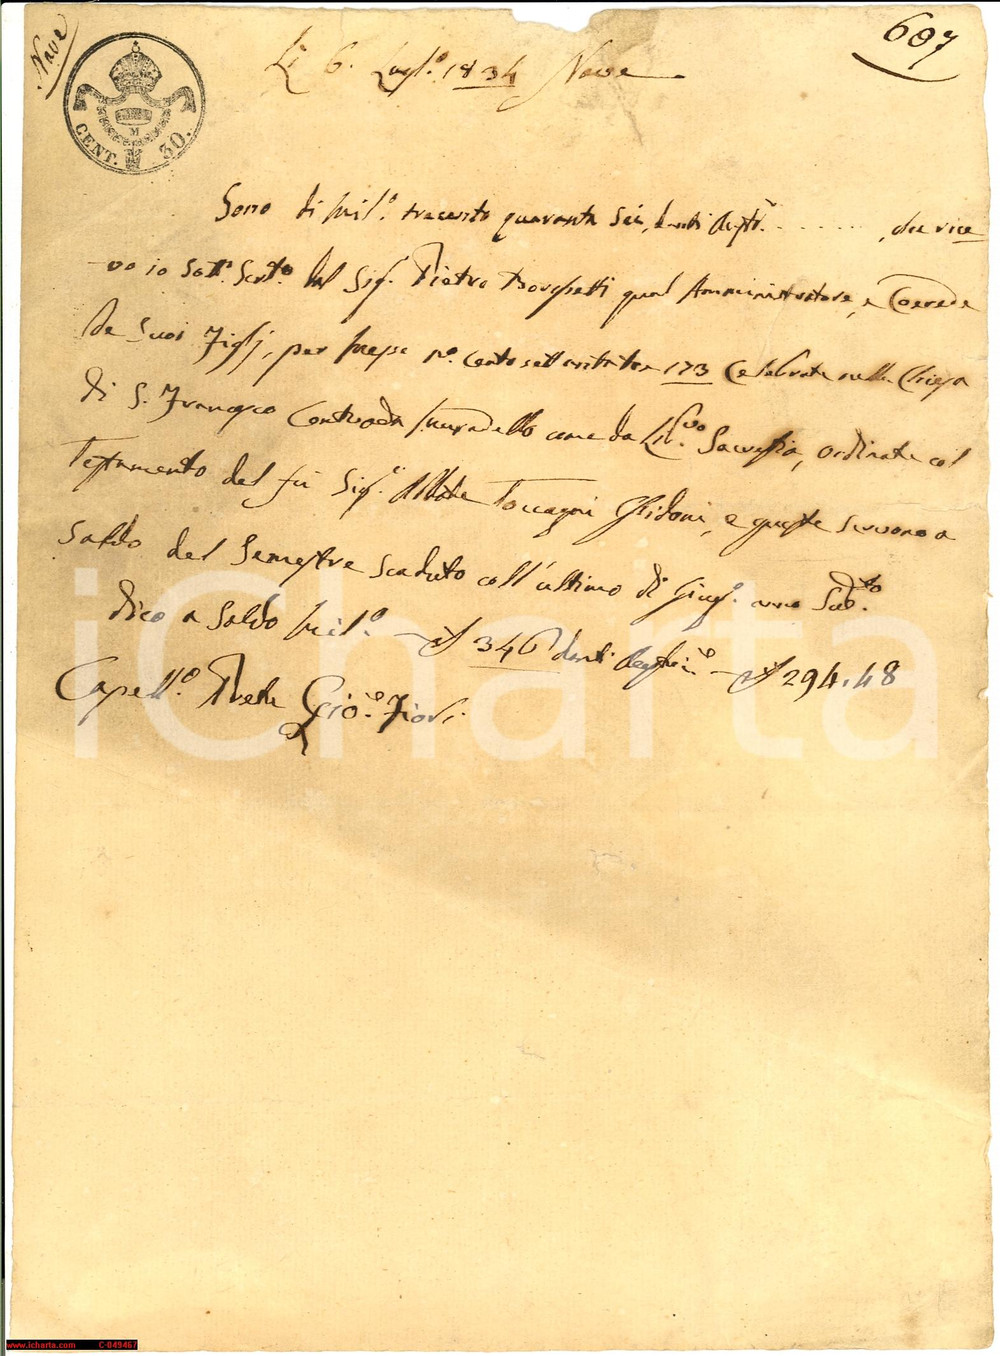 Nave
607
CENT. 30.
M
Li 6. Lugl.º 1834 Nave
Sono di Mil.º trecento quaranta sei, danti Austr.e . . . . . . , che rice
vo io Sott.º Scrt.º dal Sig.r Pietro Borghetti qual Amministratore, e Coerede
de Suoi Figlj, per Messe N.º Cento settantatre 173 Celebrate nella Chiesa
di S. Francesco Contrada Muradello come da Lib.vo Sacrestia, ordinate col
Testamento del fu Sig.r Abbate Toccagni Ghidoni, e queste servono a
Saldo del Semestre Scaduto coll'ultimo di Giug.º anno Sud.to
dico a Saldo Mil.º £ 346 danti £ 294.48
Capell.º Prete Gio.e Fiori.
iCharta
www.icharta.com C-049467